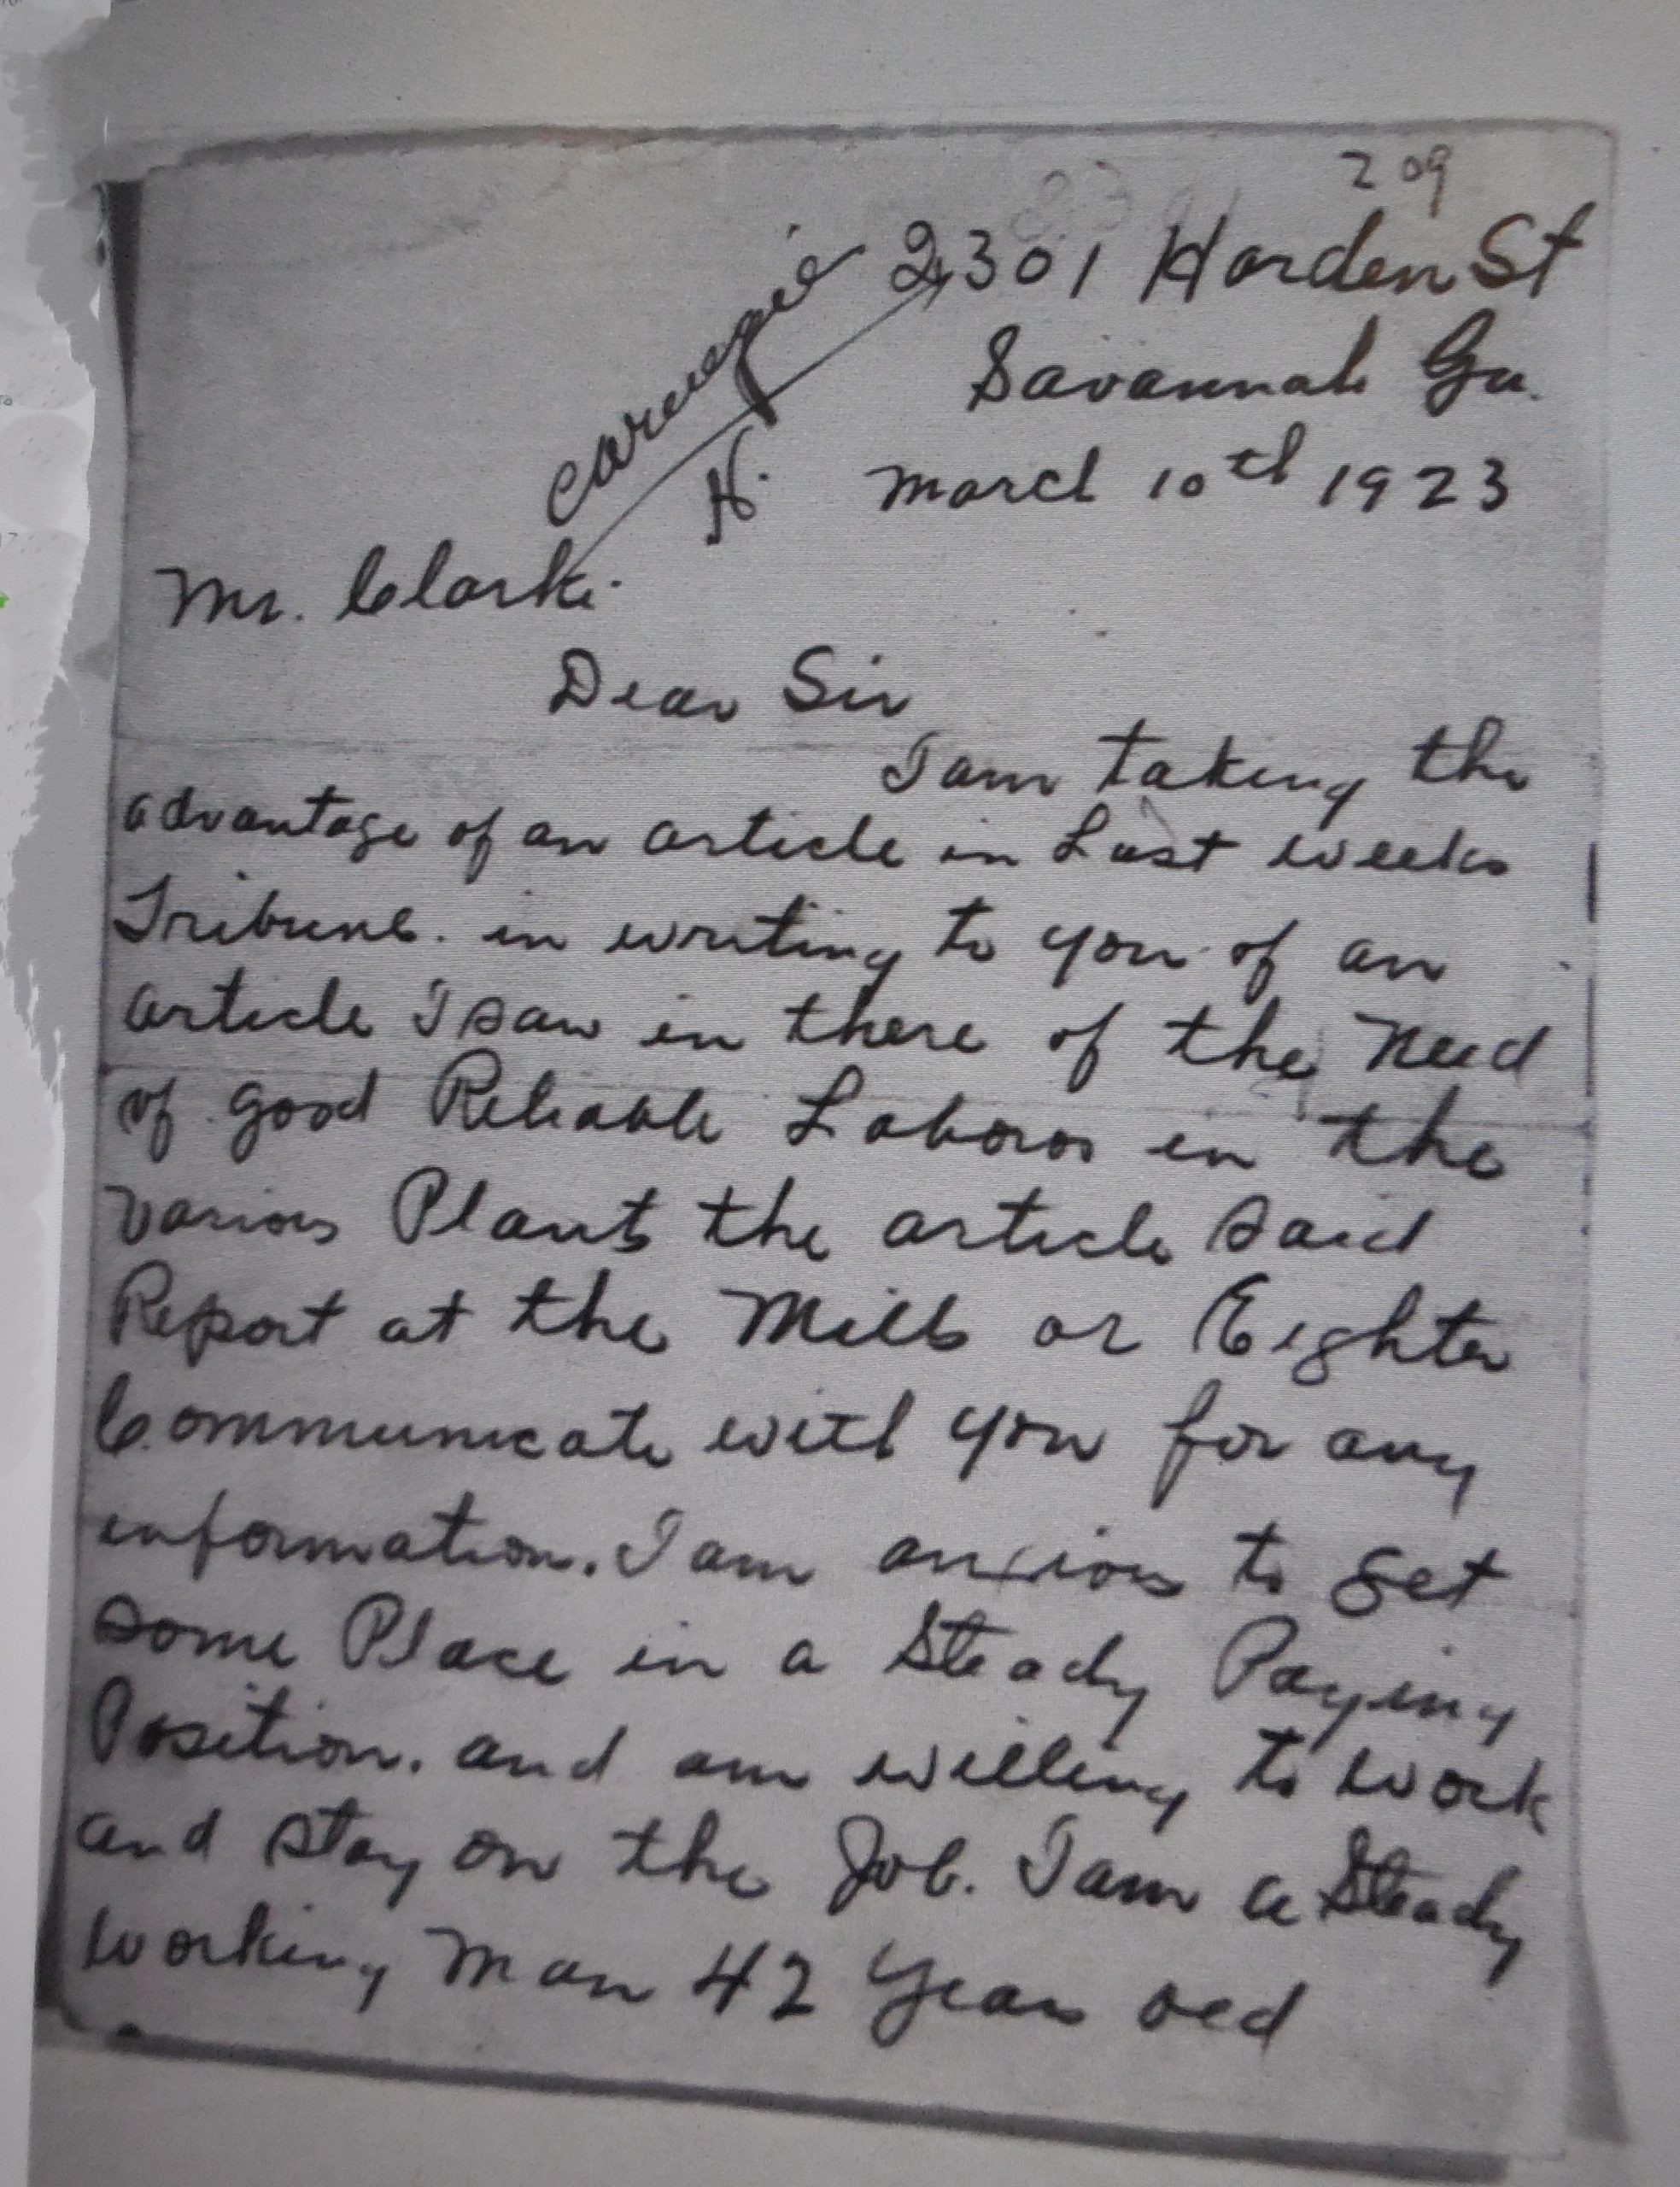 209
2301 Harden St
Savannah Ga.
Carnegie
H.
March 10th 1923
Mr. Clark.
Dear Sir
I am taking the
advantage of an article in Last weeks
Tribune. in writing to you of an
article I saw in there of the need
of good Reliable Labors in the
various Plants the article said
Report at the Mills or Eighter
Communicate with you for any
information. I am anxious to get
some Place in a Steady Paying
Position. and am willing to work
and stay on the Job. I am a Steady
working man 42 Years old